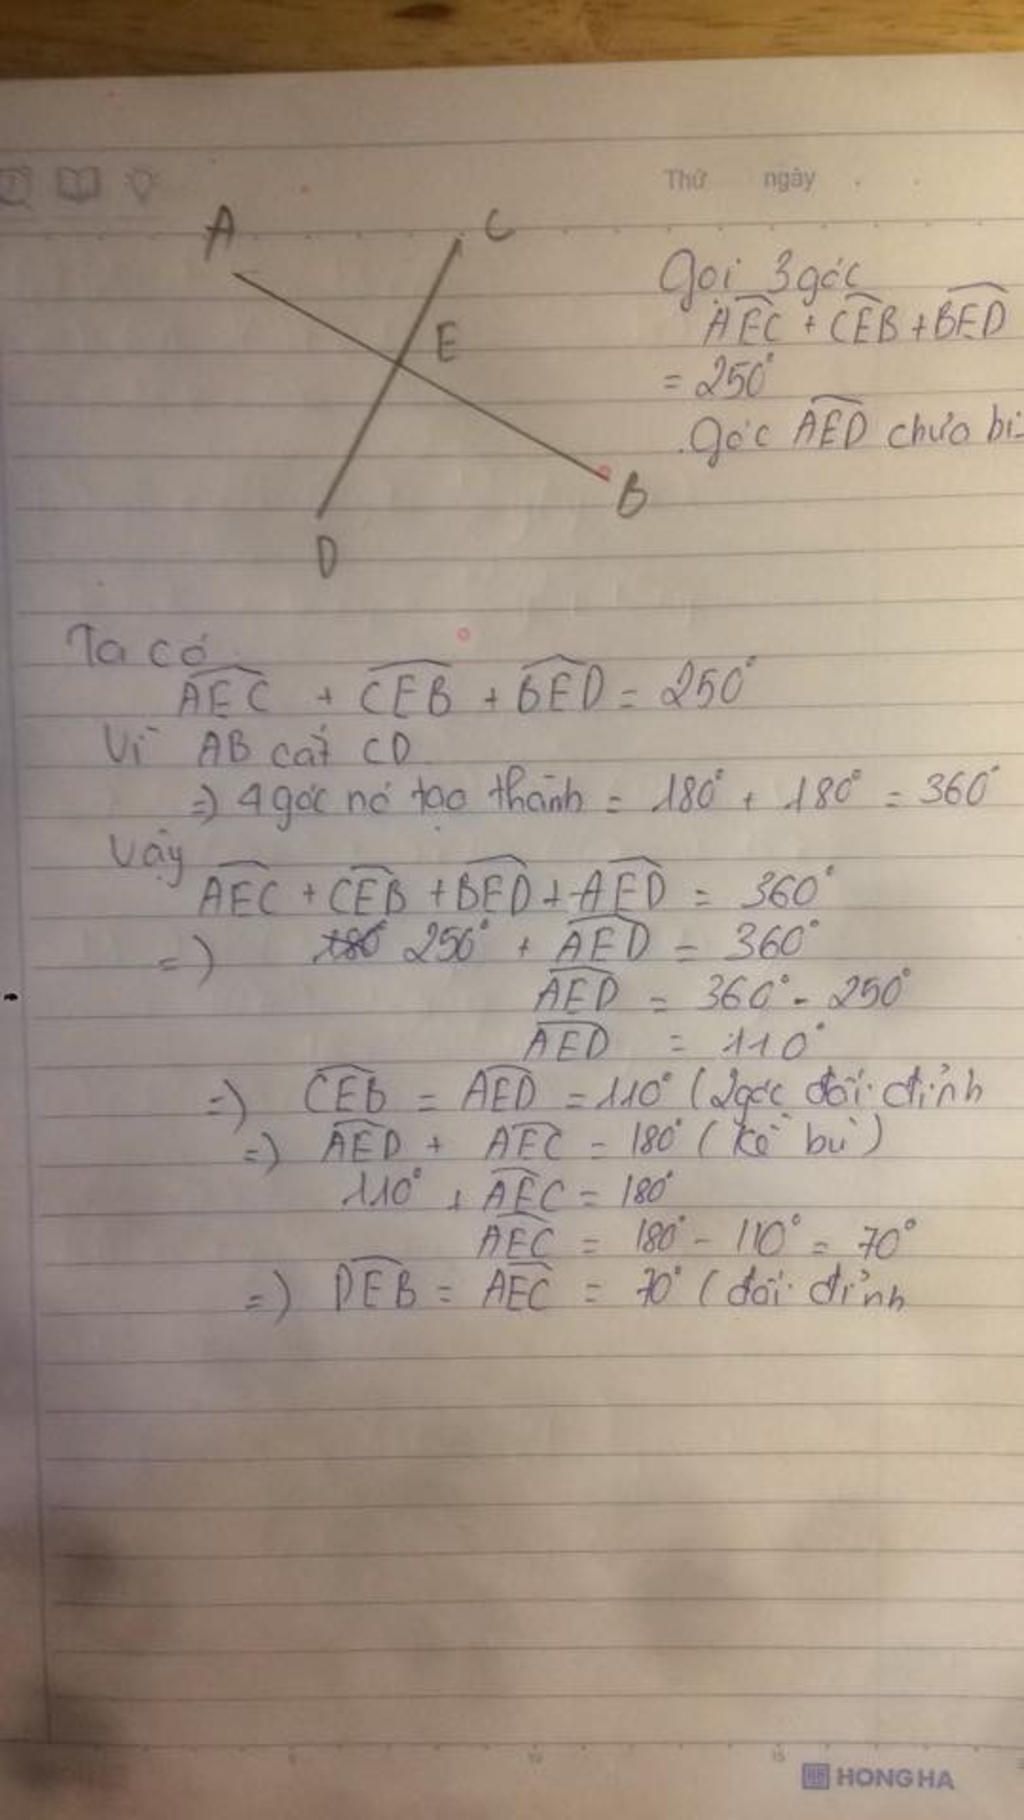 Thứ ngày
A
C
E
B
D
Gọi 3 góc
AEC + CEB + BED
= 250°
góc AED chưa
Ta có
AEC + CEB + BED = 250°
Vì AB cắt CD
=) 4 góc nó tạo thành = 180° + 180° = 360°
Vậy
AEC + CEB + BED + AED = 360°
=) 250° + AED = 360°
AED = 360° - 250°
AED = 110°
=) CEB = AED = 110° (2 góc đối đỉnh
=) AED + AEC = 180° (kề bù)
110° + AEC = 180°
AEC = 180° - 110° = 70°
=) DEB = AEC = 70° (đối đỉnh
5 10 15
HONG HA